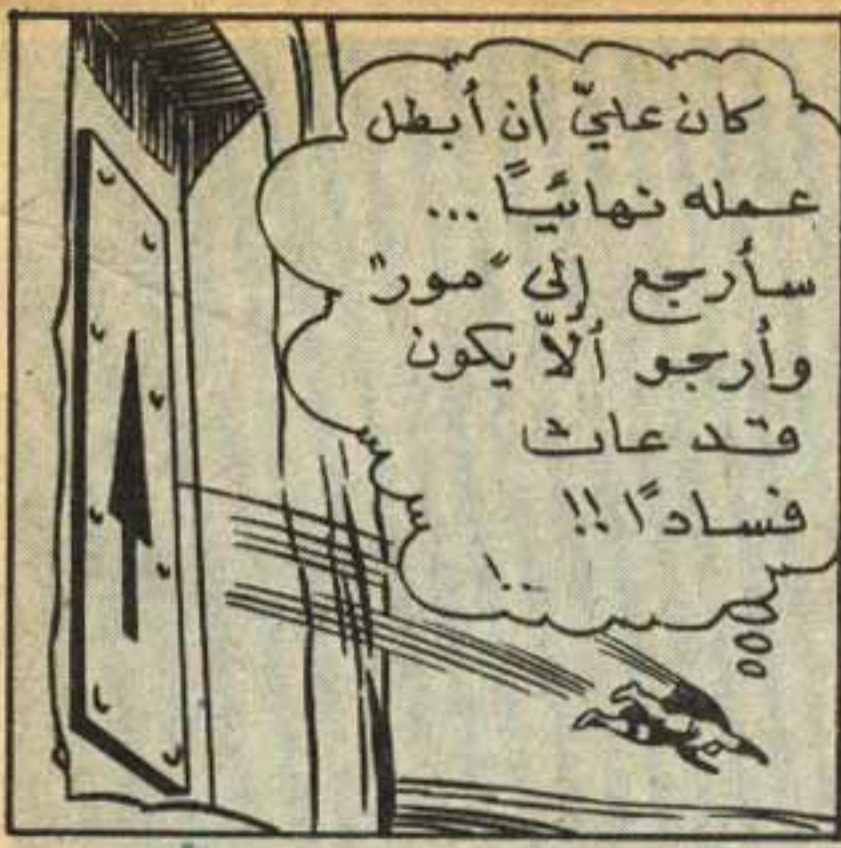 كان عليّ أن أبطل
عمله نهائيًا ...
سأرجع إلى "مور"
وأرجو ألّا يكون
قد عاث
فسادًا !!